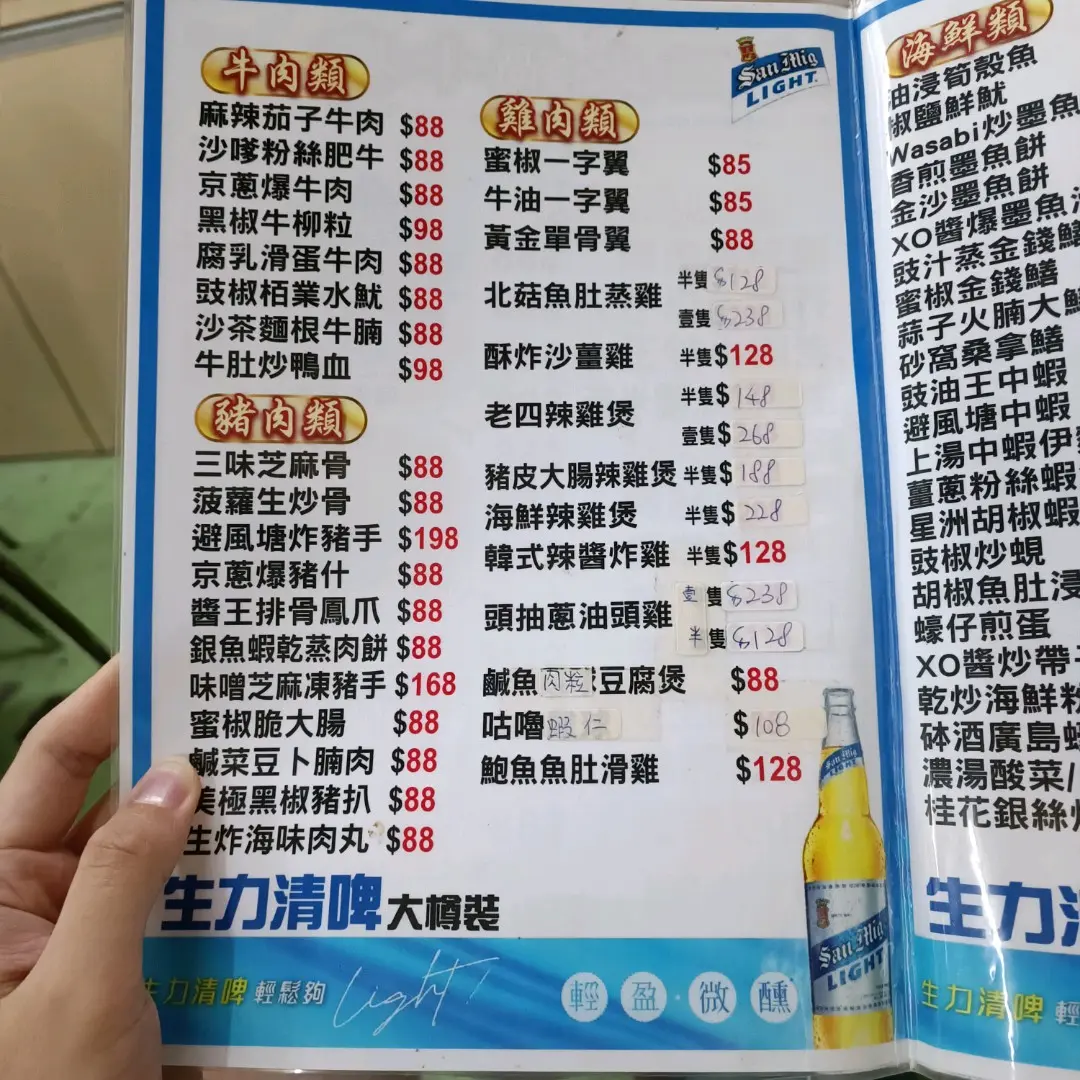 牛肉類
麻辣茄子牛肉 $88
沙嗲粉絲肥牛 $88
京蔥爆牛肉 $88
黑椒牛柳粒 $98
腐乳滑蛋牛肉 $88
豉椒栢業水魷 $88
沙茶麵根牛腩 $88
牛肚炒鴨血 $98
豬肉類
三味芝麻骨 $88
菠蘿生炒骨 $88
避風塘炸豬手 $198
京蔥爆豬什 $88
醬王排骨鳳爪 $88
銀魚蝦乾蒸肉餅 $88
味噌芝麻凍豬手 $168
蜜椒脆大腸 $88
鹹菜豆卜腩肉 $88
美極黑椒豬扒 $88
生炸海味肉丸 $88
雞肉類
蜜椒一字翼 $85
牛油一字翼 $85
黃金單骨翼 $88
北菇魚肚蒸雞 半隻 $128
壹隻 $238
酥炸沙薑雞 半隻$128
老四辣雞煲 半隻$148
壹隻$268
豬皮大腸辣雞煲 半隻$188
海鮮辣雞煲 半隻$228
韓式辣醬炸雞 半隻$128
頭抽蔥油頭雞 壹隻 $238
半隻 $128
鹹魚肉粒豆腐煲 $88
咕嚕蝦仁 $108
鮑魚魚肚滑雞 $128
San Mig
LIGHT
生力清啤 大樽裝
生力清啤 輕鬆夠 Light
輕盈·微醺
San Mig
LIGHT
海鮮類
油浸筍殼魚
椒鹽鮮魷
Wasabi炒墨魚
香煎墨魚餅
金沙墨魚餅
XO醬爆墨魚
豉汁蒸金錢鱔
蜜椒金錢鱔
蒜子火腩大
砂窩桑拿鱔
豉油王中蝦
避風塘中蝦
上湯中蝦伊
薑蔥粉絲蝦
星洲胡椒蝦
豉椒炒蜆
胡椒魚肚浸
蠔仔煎蛋
XO醬炒帶子
乾炒海鮮粉
砵酒廣島蠔
濃湯酸菜/
桂花銀絲
生力
生力清啤 輕